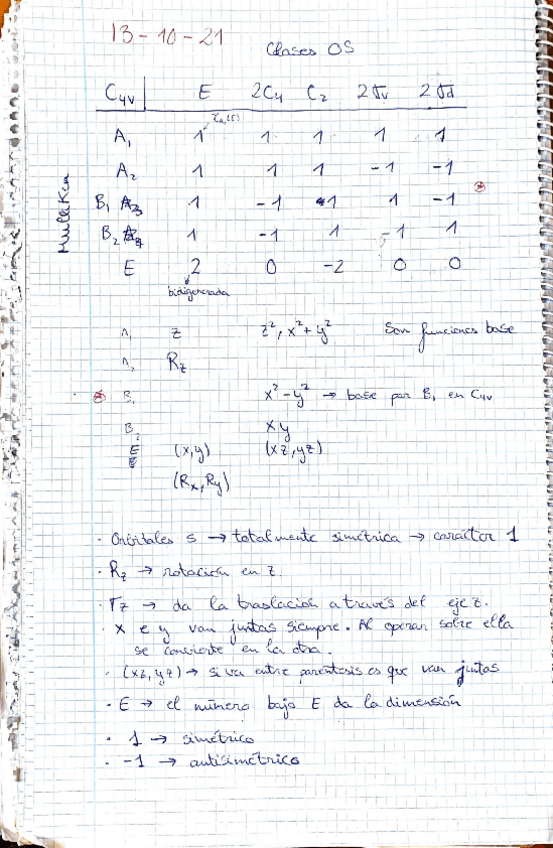 13-10-21
Clases OS
C4v | E 2C4 C2 2σv 2σd
A1 1 1 1 1 1
A2 1 1 1 -1 -1
B1 1 -1 1 1 -1
B2 1 -1 1 -1 1
E 2 0 -2 0 0
Mulliken
bidegenerada
A1 z z², x²+y² Son funciones base
A2 Rz
B1 x²-y² → base par B1 en C4v
B2 xy
E (x,y) (xz,yz)
(Rx,Ry)
· Orbitales s → totalmente simétrica → carácter 1
· Rz → rotación en z.
· Tz → da la traslación a través del eje z.
· x e y van juntas siempre. Al operar sobre ella
se convierte en la otra.
· (xz,yz) → si va entre paréntesis es que van juntas
· E → el número bajo E da la dimensión
· 1 → simétrico
· -1 → antisimétrico